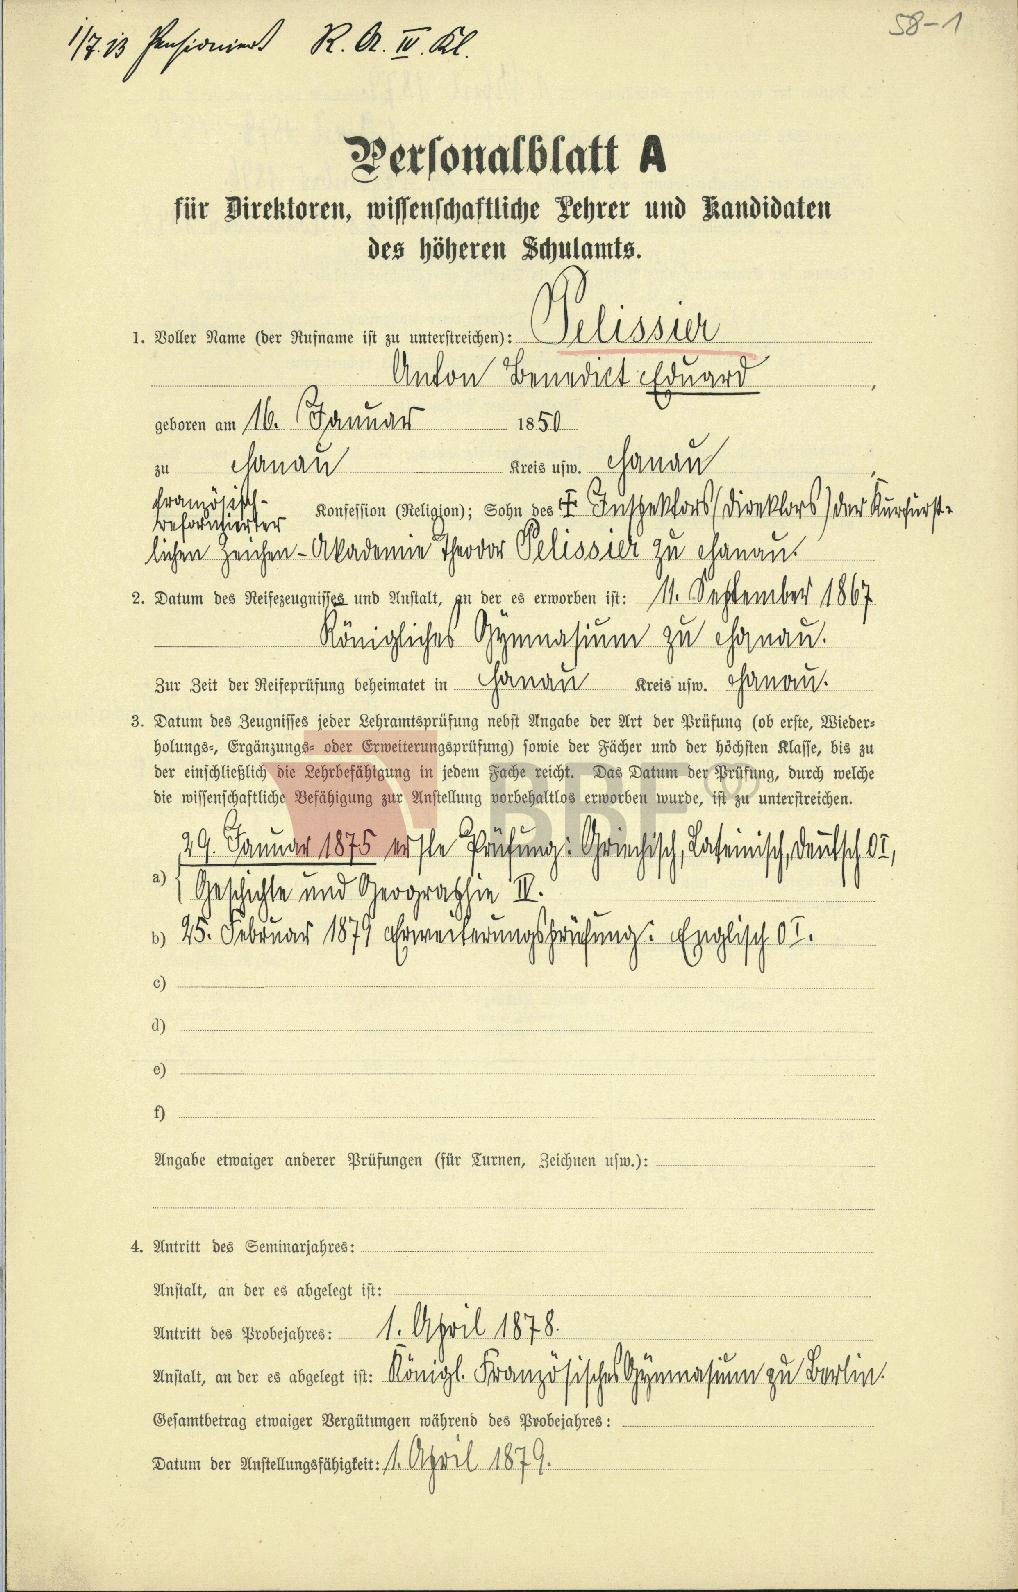 1/7.13 Pensioniert R. A. IV. Kl.
58-1
Personalblatt A
für Direktoren, wissenschaftliche Lehrer und Kandidaten
des höheren Schulamts.
1. Voller Name (der Rufname ist zu unterstreichen): Pelissier
Anton Benedict Eduard,
geboren am 16. Januar 1850
zu Hanau Kreis usw. Hanau,
französisch-
reformierter Konfession (Religion); Sohn des † Inspektors (Direktors) der Kurfürst-
lichen Zeichen-Akademie Theodor Pelissier zu Hanau.
2. Datum des Reifezeugnisses und Anstalt, an der es erworben ist: 11. September 1867
Königliches Gymnasium zu Hanau.
Zur Zeit der Reifeprüfung beheimatet in Hanau Kreis usw. Hanau.
3. Datum des Zeugnisses jeder Lehramtsprüfung nebst Angabe der Art der Prüfung (ob erste, Wieder-
holungs-, Ergänzungs- oder Erweiterungsprüfung) sowie der Fächer und der höchsten Klasse, bis zu
der einschließlich die Lehrbefähigung in jedem Fache reicht. Das Datum der Prüfung, durch welche
die wissenschaftliche Befähigung zur Anstellung vorbehaltlos erworben wurde, ist zu unterstreichen.
BBF®
29. Januar 1875 erste Prüfung: Griechisch, Lateinisch, Deutsch OI,
a) Geschichte und Geographie IV.
b) 25. Februar 1879 Erweiterungsprüfung: Englisch OI.
c)
d)
e)
f)
Angabe etwaiger anderer Prüfungen (für Turnen, Zeichnen usw.):
4. Antritt des Seminarjahres:
Anstalt, an der es abgelegt ist:
Antritt des Probejahres: 1. April 1878.
Anstalt, an der es abgelegt ist: Königl. Französisches Gymnasium zu Berlin.
Gesamtbetrag etwaiger Vergütungen während des Probejahres:
Datum der Anstellungsfähigkeit: 1. April 1879.